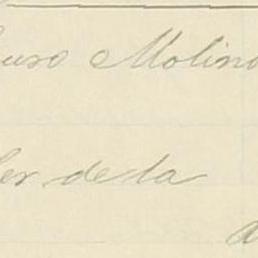 uso Molino
ler de la
a